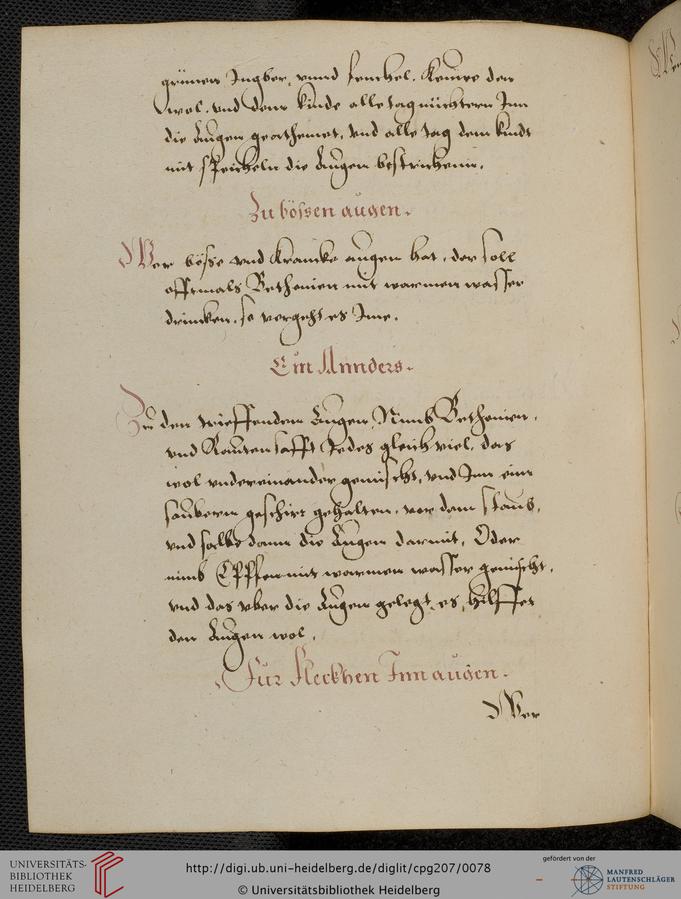 grünen Ingber, vnnd fenchel. Keuwe den
wol. vnd dem kinde alle tag nüchtern Inn
die Augen geathemet, vnd alle tag dem kindt
mit speicheln die Augen bestrichenn.
Zu bössen augen.
Wer bösße vnd krancke augen hat, der soll
offtmals Bethonien mit warmen wasser
drincken, so vergeht es Ime.
Ein Annders.
Zu den trieffenden Augen, Nimb Bethonien,
vnd Rauten safft Jedes gleich viel, das
wol vndereinander gemischt, vnd Inn einn
saubern geschirr gehalten, vor dem staub,
vnd salbe dann die Augen darmit, Oder
nimb Epffen mit warmen wasser gemischt,
vnd das vber die Augen gelegt, es hilffet
den Augen wol.
Für fleckhen Inn augen.
Wer
UNIVERSITÄTS-
BIBLIOTHEK
HEIDELBERG
http://digi.ub.uni-heidelberg.de/diglit/cpg207/0078
© Universitätsbibliothek Heidelberg
gefördert von der
MANFRED
LAUTENSCHLÄGER
STIFTUNG